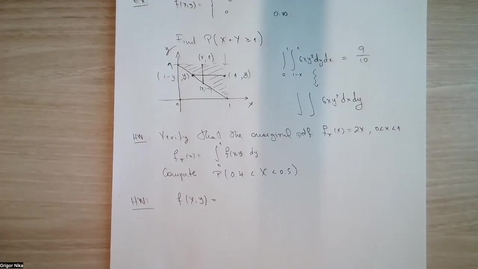 Ex:
f(x,y)= {
0 o.w.
Find P(X+Y≥1)
y
(x,1)
(1-y, y)
(1, y)
0 1 x
∫₀¹ ∫₁₋ₓ¹ 6xy² dy dx = 9/10
∫∫ 6xy² dx dy
HW: Verify that the marginal pdf fₓ(x) = 2x, 0<x<1
fₓ(x) = ∫₀¹ f(x,y) dy
Compute P(0.4 < X < 0.5)
HW: f(x,y) =
Grigor Nika